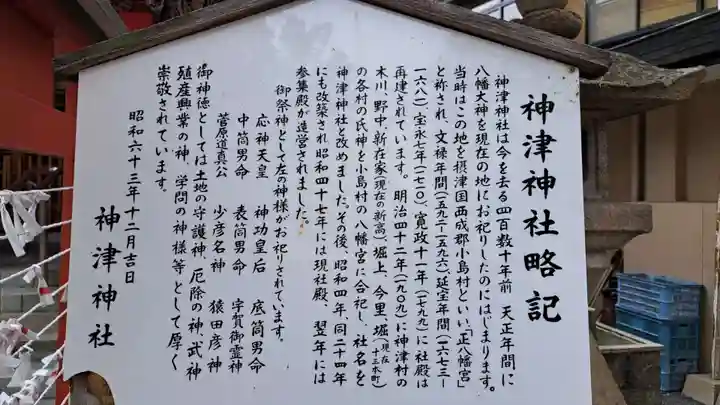 神津神社略記
神津神社は今を去る四百数十年前 天正年間に
八幡大神を現在の地にお祀りしたのにはじまります。
当時はこの地を摂津国西成郡小島村といい「正八幡宮」
と称され、文禄年間(一五九二ー一五九六)延宝年間(一六七三ー
一六八一)、宝永七年(一七一〇)、寛政十一年(一七九九)に社殿は
再建されています。明治四十二年(一九〇九)に神津村の
木川、野中、新在家(現在の新高)、堀上、今里、堀(現在の十三本町)
の各村の氏神を小島村の八幡宮に合祀し、社名を
神津神社と改めました。その後、昭和四年、同二十四年
にも改築され昭和四十七年には現社殿、翌年には
参集殿が造営されました。
御祭神として左の神様がお祀りされています。
応神天皇 神功皇后 底筒男命
中筒男命 表筒男命 宇賀御霊神
菅原道真公 少彦名神 猿田彦神
御神徳としては土地の守護神、厄除の神、武神
殖産興業の神、学問の神様等として厚く
崇敬されています。
昭和六十三年十二月吉日
神津神社